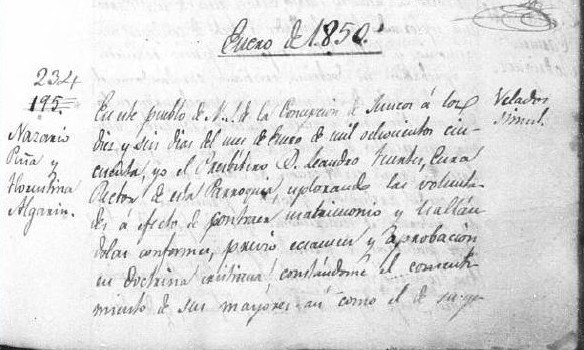 Enero de 1850.
234
195
Nazario
Piña y
Flonstina
Algarin.
Velados
simul.
En este pueblo de N. S. de la Concepcion de Juncos á los
diez y seis dias del mes de Enero de mil ochocientos cin-
cuenta, yo el Presbitero D. Leandro Fuentes, Cura
Rector de esta Parroquia, esplorando las volunta-
des á efecto de contraer matrimonio y hallan
dolas conformes, previo ecsamen y aprobacion
en doctrina cristiana, constándome el consenti-
miento de sus mayores, asi como el de